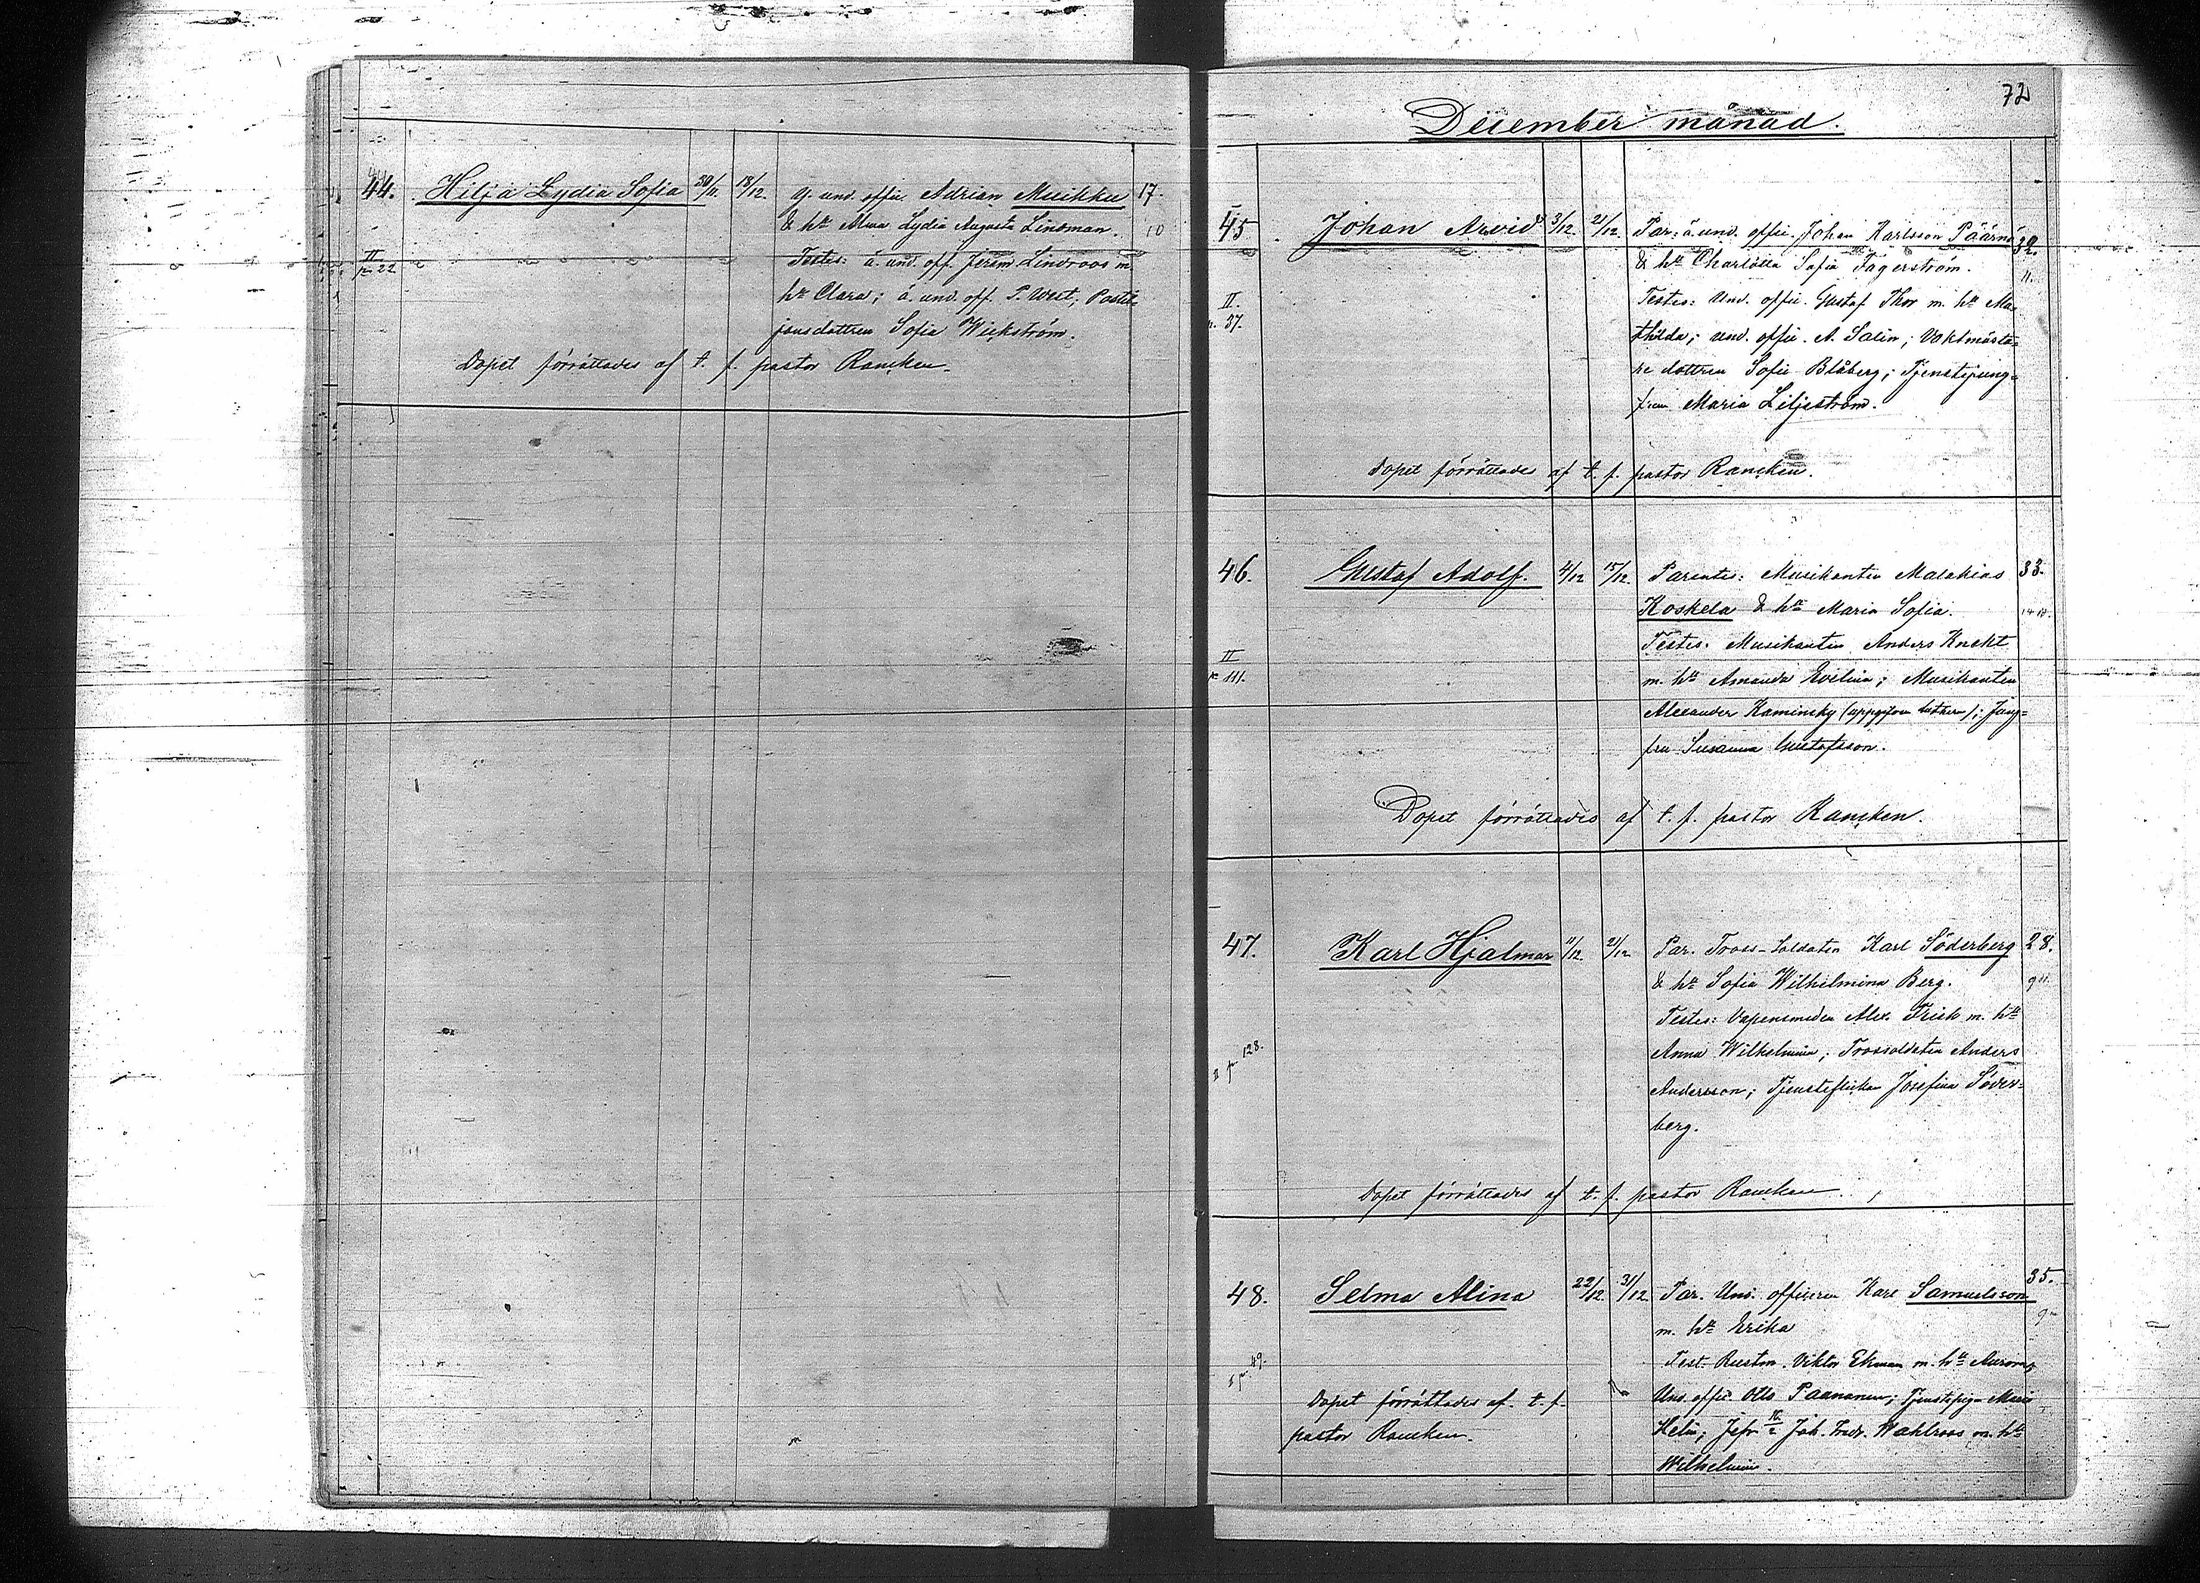 44. Hilja Lydia Sofia 30/11. 18/12. y. und. offic. Adrian Musikku 17.
& hu Alma Lydia Augusta Lindman. 10
II
p. 22 Testes: ä. und. off. Jerem Lindroos m.
hu Clara; ä. und. off. P. West, Postil-
jonsdottren Sofia Wickström.
Dopet förrättades af t. f. pastor Rancken.
72
December månad.
45. Johan Arvid 3/12. 21/12. Par: ä. und. offic. Johan Karlsson Päärni 32.
& hu Charlotta Sofia Fagerström. 11.
II.
p. 37. Testes: Und. offic. Gustaf Thor m. hu Ma-
thilda; und. offic. A. Salin; Vaktmästa-
re dottren Sofie Blåberg; Tjenstejung-
frun Maria Liljeström.
Dopet förrättades af t. f. pastor Rancken.
46. Gustaf Adolf. 4/12 15/12. Parentes: Musikanten Malakias 33.
Koskela & hu Maria Sofia.
Testes: Musikanten Anders Knekt
II
p. 111. m. hu Amanda Evelina; Musikanten
Alexander Kaminsky (uppgifven luthern); Jung-
fru Susanna Gustafsson.
Dopet förrättades af t. f. pastor Rancken.
47. Karl Hjalmar 11/12. 21/12. Par. Tross-Soldaten Karl Söderberg 28.
& hu Sofia Wilhelmina Berg.
Testes: Vapensmeden Alex. Frisk m. hu
128. Anna Wilhelmina; Trossoldaten Anders
Andersson; Tjensteflickan Josefina Söder-
berg.
Dopet förrättades af t. f. pastor Rancken.
48. Selma Alina 22/12. 31/12 Par. Und. officeren Karl Samuelsson 35.
m. hu Erika
49. Test. Rustm. Viktor Ekman m. hu Aurora;
Dopet förrättades af t. f. Und. offic. Otto Paananen; Tjenstepig. Maria
pastor Rancken. Helin; Joh. Fredr. Wahlroos m. hu
Wilhelmin.